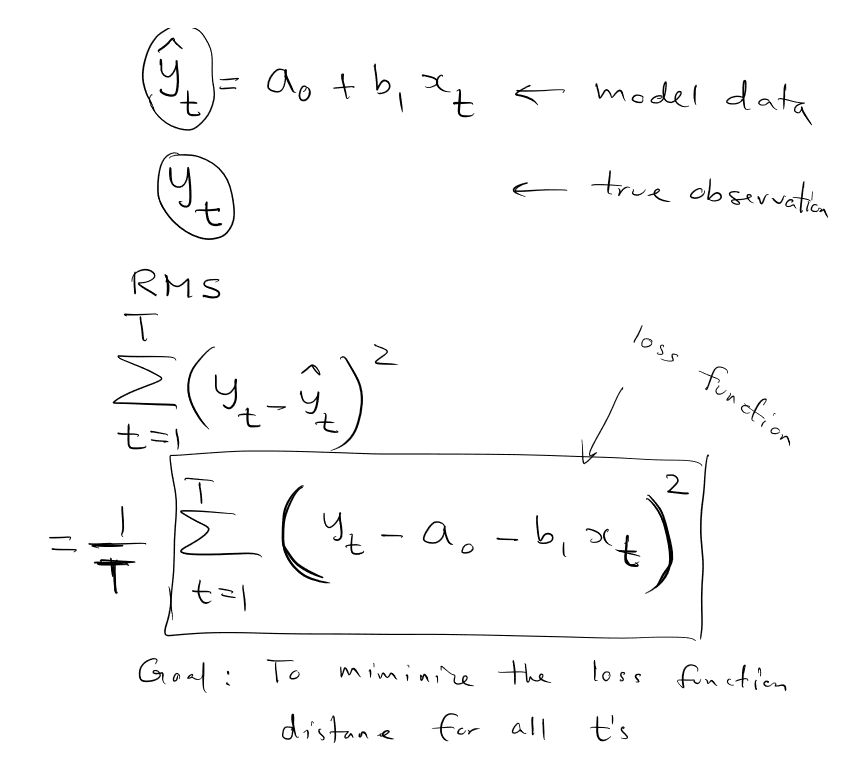 ŷ_t = a_0 + b_1 x_t ← model data
y_t ← true observation
RMS
∑_{t=1}^{T} (y_t - ŷ_t)^2
loss function
= 1/T ∑_{t=1}^{T} (y_t - a_0 - b_1 x_t)^2
Goal: To miminize the loss function
distane for all t's